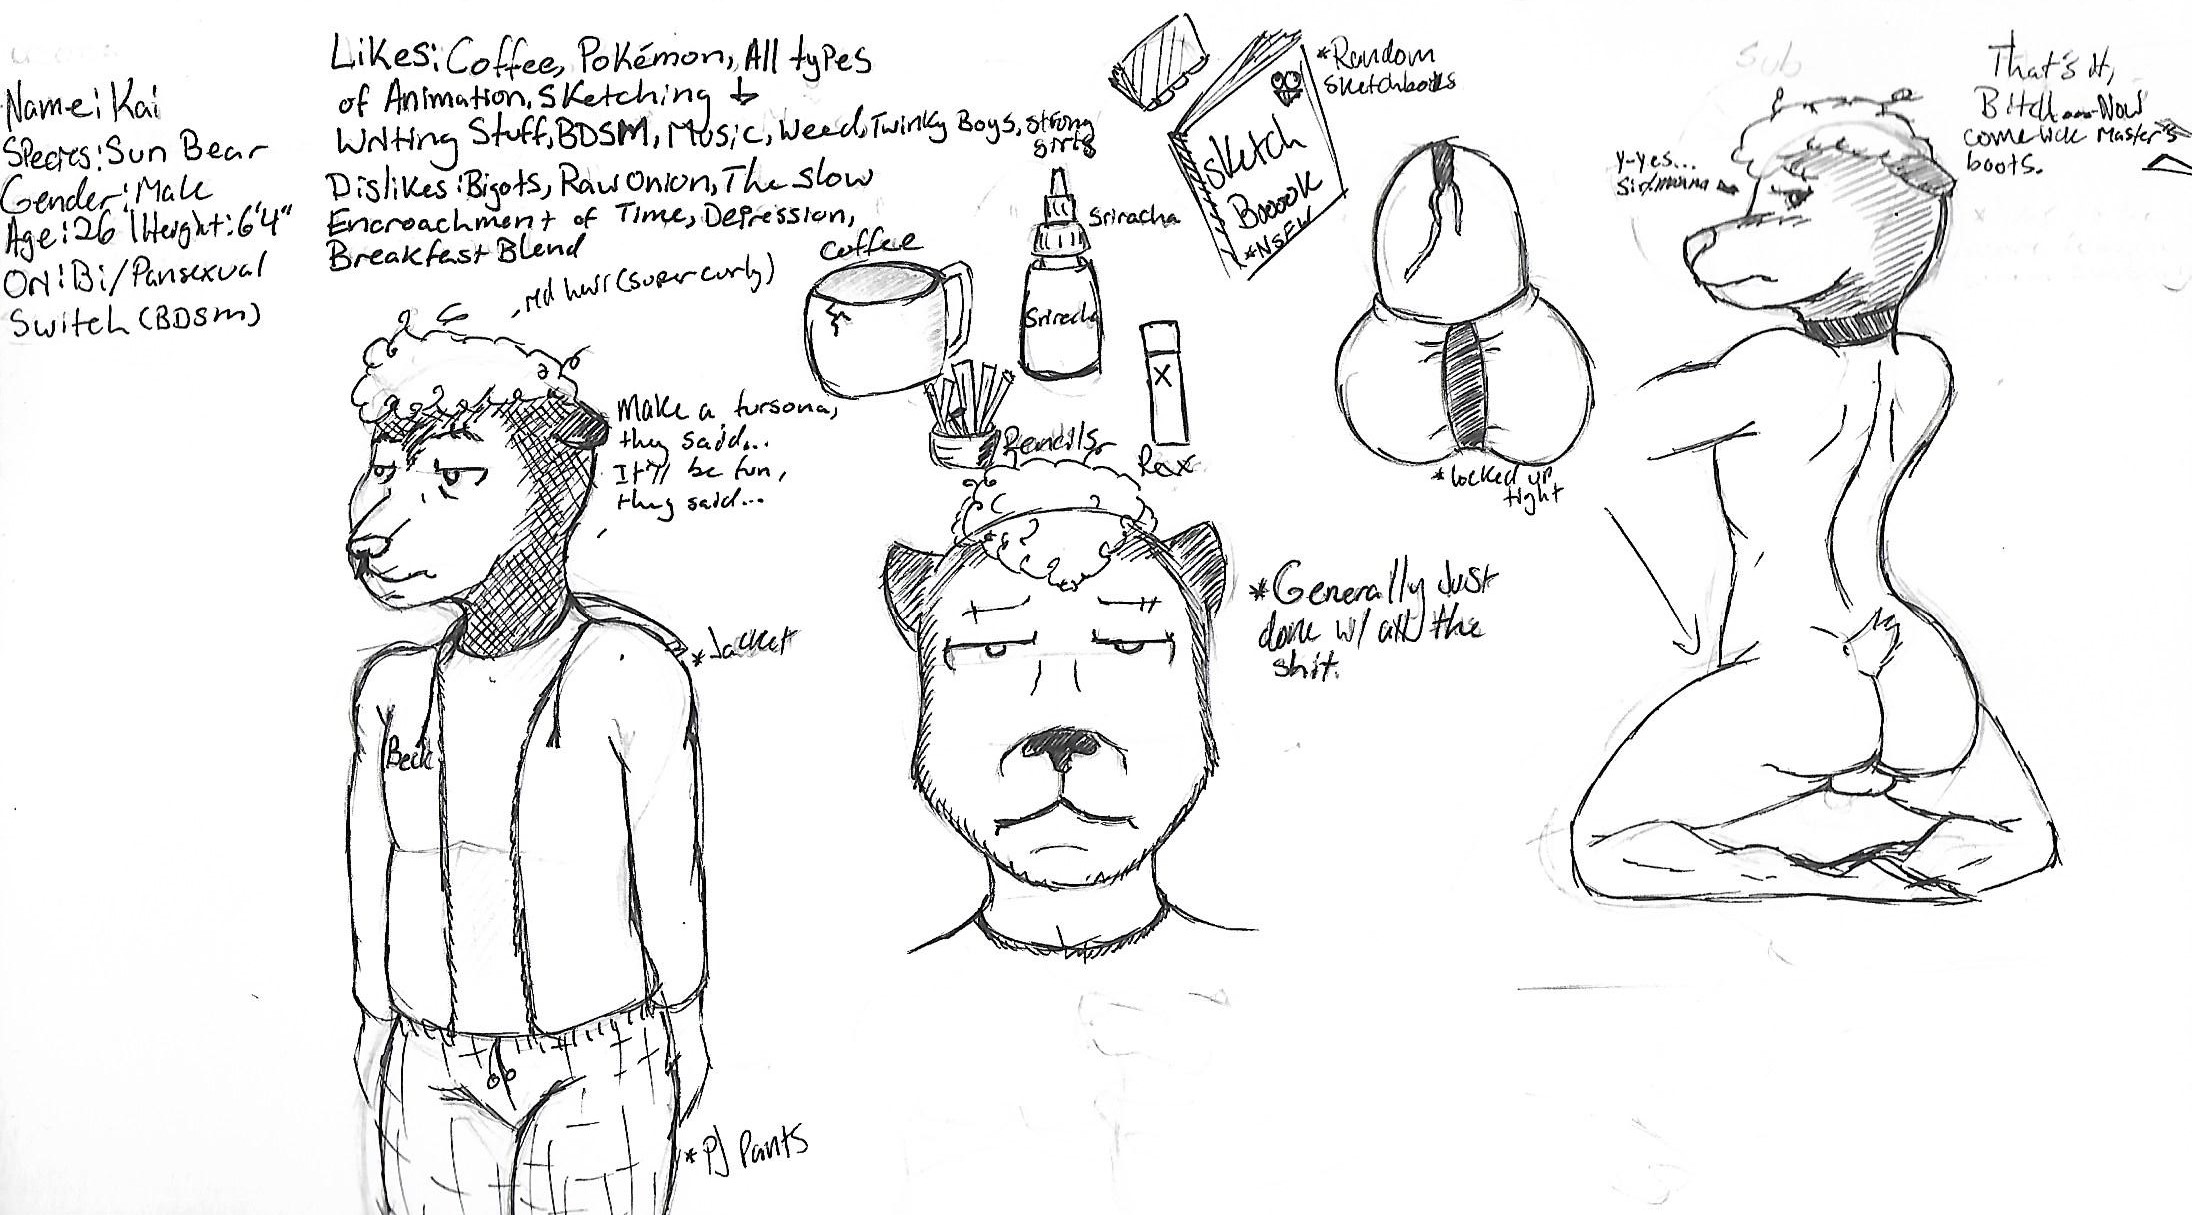 Name: Kai
Species: Sun Bear
Gender: Male
Age: 26 | Height: 6'4"
Ori: Bi/Pansexual
Switch (BDSM)
Likes: Coffee, Pokémon, All types
of Animation, Sketching &
Writing Stuff, BDSM, Music, Weed, Twinky Boys, strong
girls
Dislikes: Bigots, Raw Onion, The slow
Encroachment of Time, Depression,
Breakfast Blend
red hair (super curly)
Make a fursona,
they said...
It'll be fun,
they said...
*Jacket
Beck
*PJ Pants
coffee
Sriracha
Sriracha
Pencils
X
*Random
sketchbooks
sketch
Boook
*NSFW
*Generally Just
done w/ all the
shit.
*locked up
tight
sub
Y-yes...
That's it,
Bitch... Now
come lick Master's
boots.